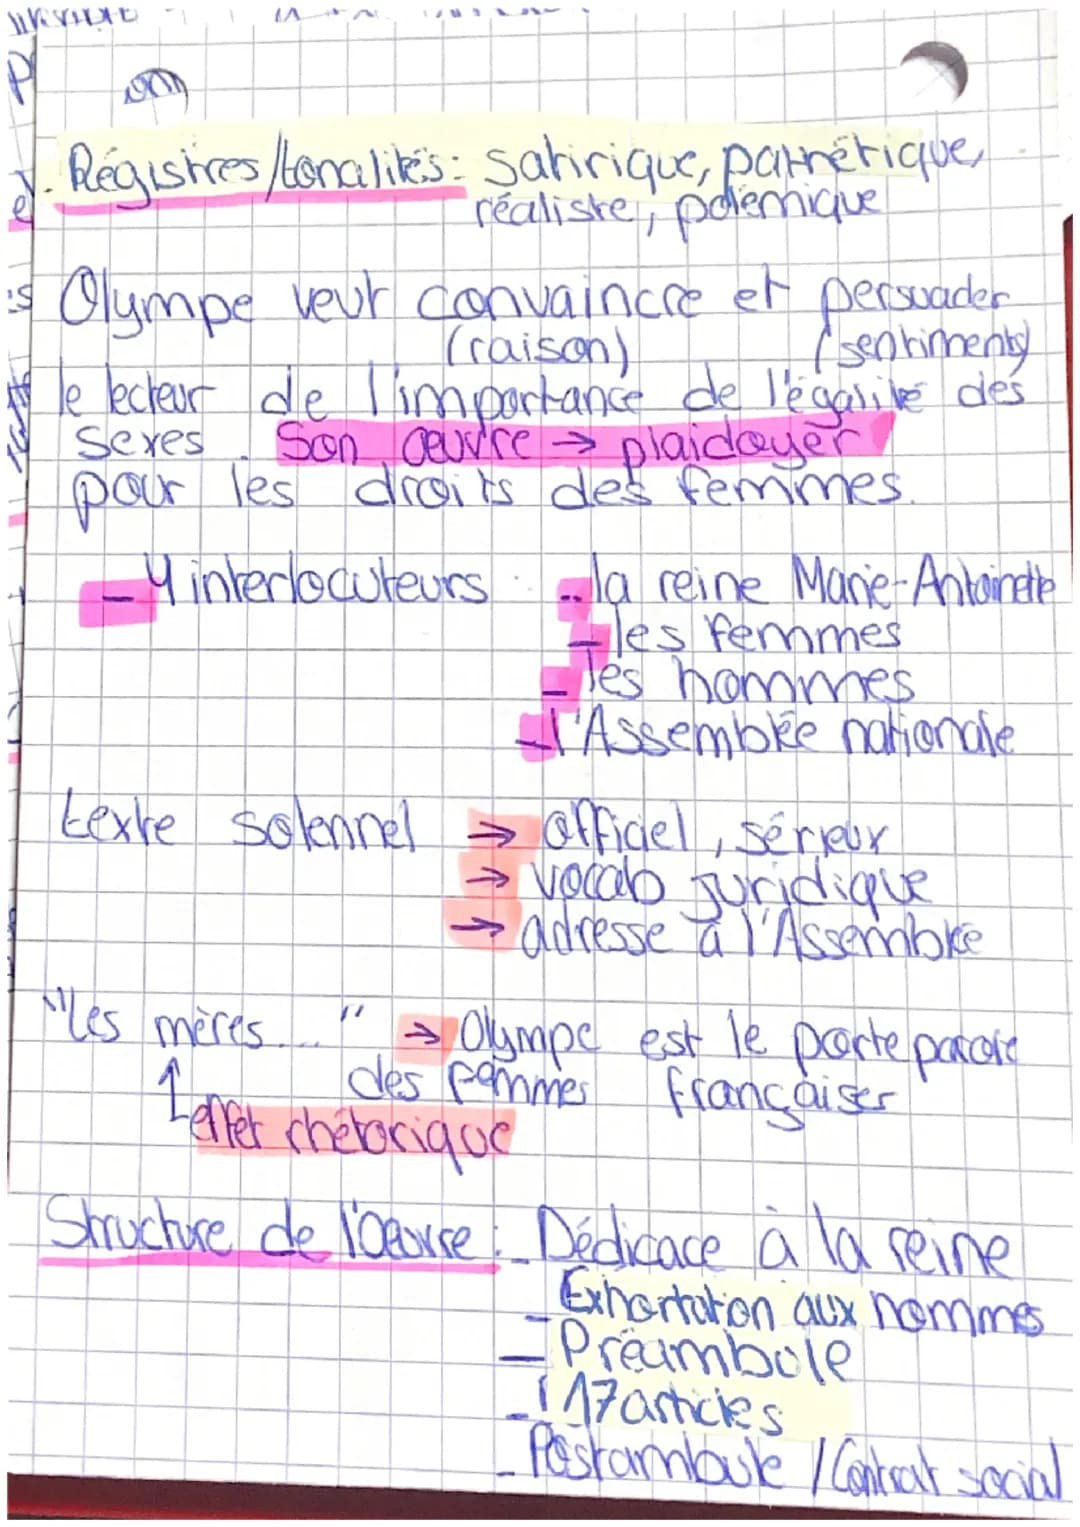 Régistres/tonalités: satirique, pathétique,
réaliste, polémique
Olympe veut convaincre et persuader
(raison) (sentiments)
le lecteur de l'importance de l'égalité des
sexes. Son œuvre → plaidoyer
pour les droits des femmes.
- 4 interlocuteurs : - la reine Marie-Antoinette
- les femmes
- les hommes
- l'Assemblée nationale
texte solennel → officiel, sérieux
→ vocab juridique
→ adresse à l'Assemblée
"Les mères...." → Olympe est le porte parole
des femmes françaises
↑ effet rhétorique
Structure de l'Oeuvre : - Dédicace à la reine
- Exhortation aux hommes
- Préambule
- 17 articles
- Postambule / Contrat social